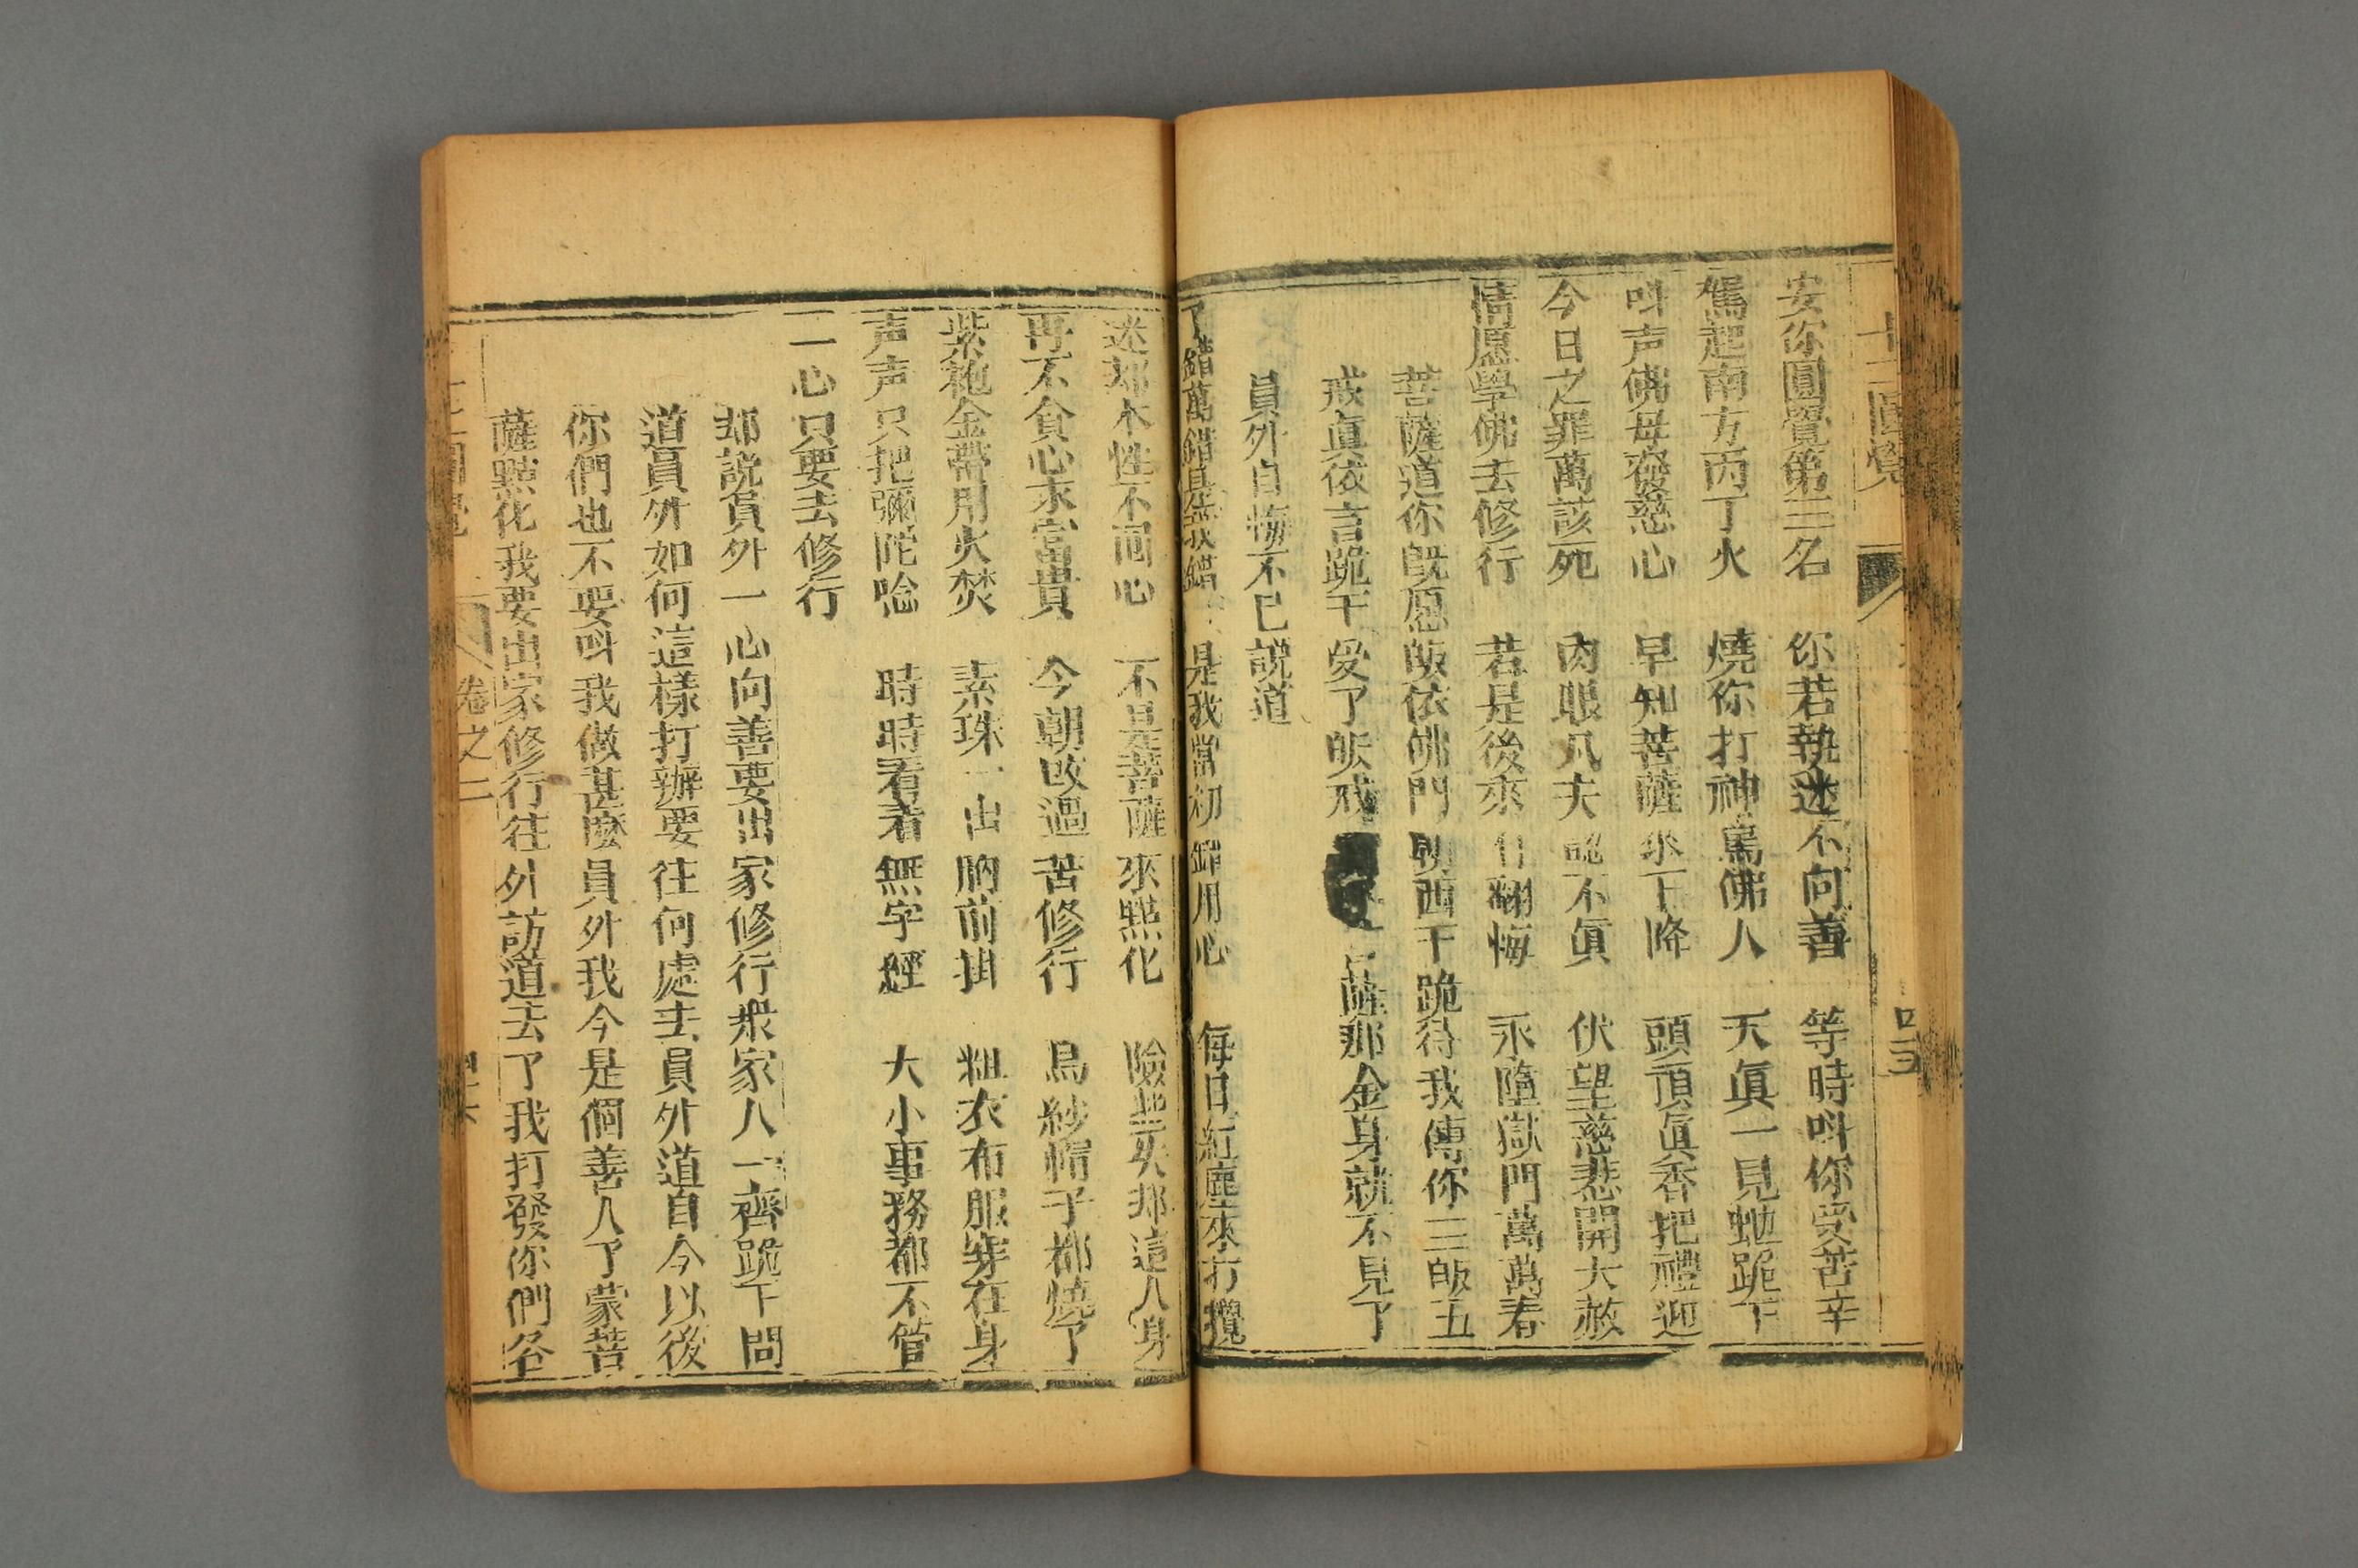 十二圓覺
安你圓覺第三名 你若執迷不向善 等時呌你受苦辛
駕起南方丙丁火 燒你打神罵佛人 天眞一見虵跪下
呌声佛母發慈心 早知菩薩來下降 頭頂眞香把禮迎
今日之罪萬該死 肉眼凡夫認不眞 伏望慈悲開大赦
情愿學佛去修行 若是後來有翻悔 永墮獄門萬萬春
菩薩道你旣愿皈依佛門朝西干跪待我傳你三皈五
戒眞依言跪下受了皈戒 薩那金身就不見了
員外自悔不已說道
了錯萬錯是我錯 是我當初錯用心 每日紅塵來打攪
迷却本性不回心 不是菩薩來㸃化 險些失却這人身
再不貪心求富貴 今朝改過苦修行 烏紗帽子都燒了
紫袍金帶用火焚 素珠一出胸前掛 粗衣布服穿在身
声声只把彌陀唸 時時看着無字經 大小事務都不管
一心只要去修行
却說員外一心向善要出家修行衆家人一齊跪下問
道員外如何這樣打辦要往何處去員外道自今以後
你們也不要呌我做甚麽員外我今是個善人了蒙菩
薩㸃化我要出家修行往外訪道去了我打發你們各
卷之二